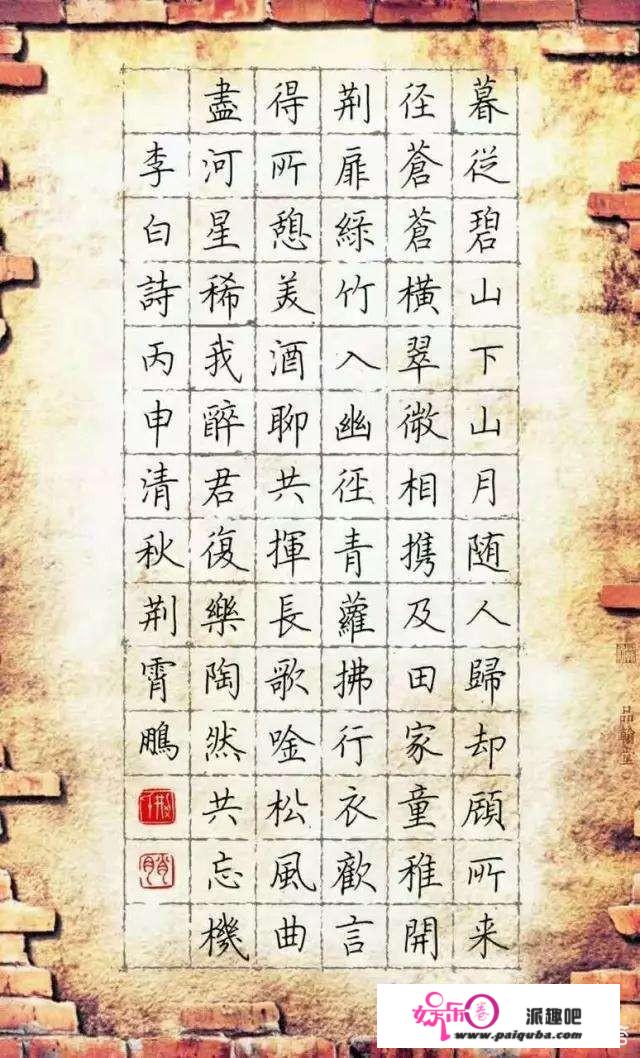 暮從碧山下山月随人歸却顧所来
径蒼蒼橫翠微相携及田家童稚開
荆扉緑竹入幽径青蘿拂行衣歡言
得所憩美酒聊共揮長歌唫松風曲
盡河星稀我醉君復樂陶然共忘機
李白詩丙申清秋荆霄鵬
品翰堂
派趣吧
www.paiquba.com